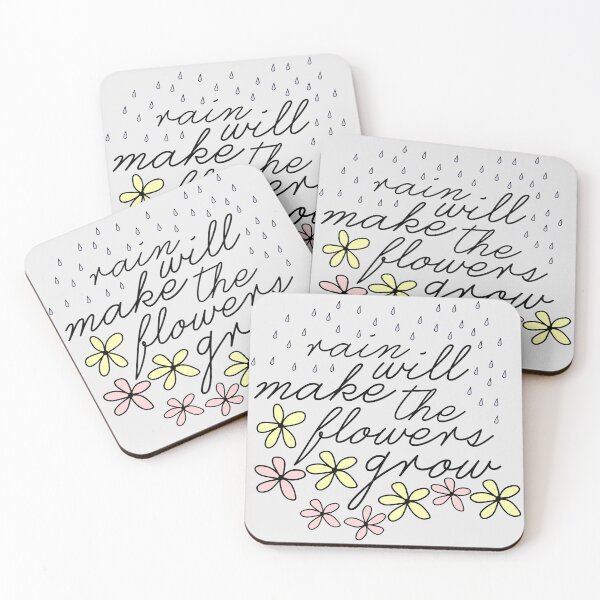 rain will
make the
rain will
make the
flowers
grow
rain will
make the
flowers
rain will
make the
flowers
grow